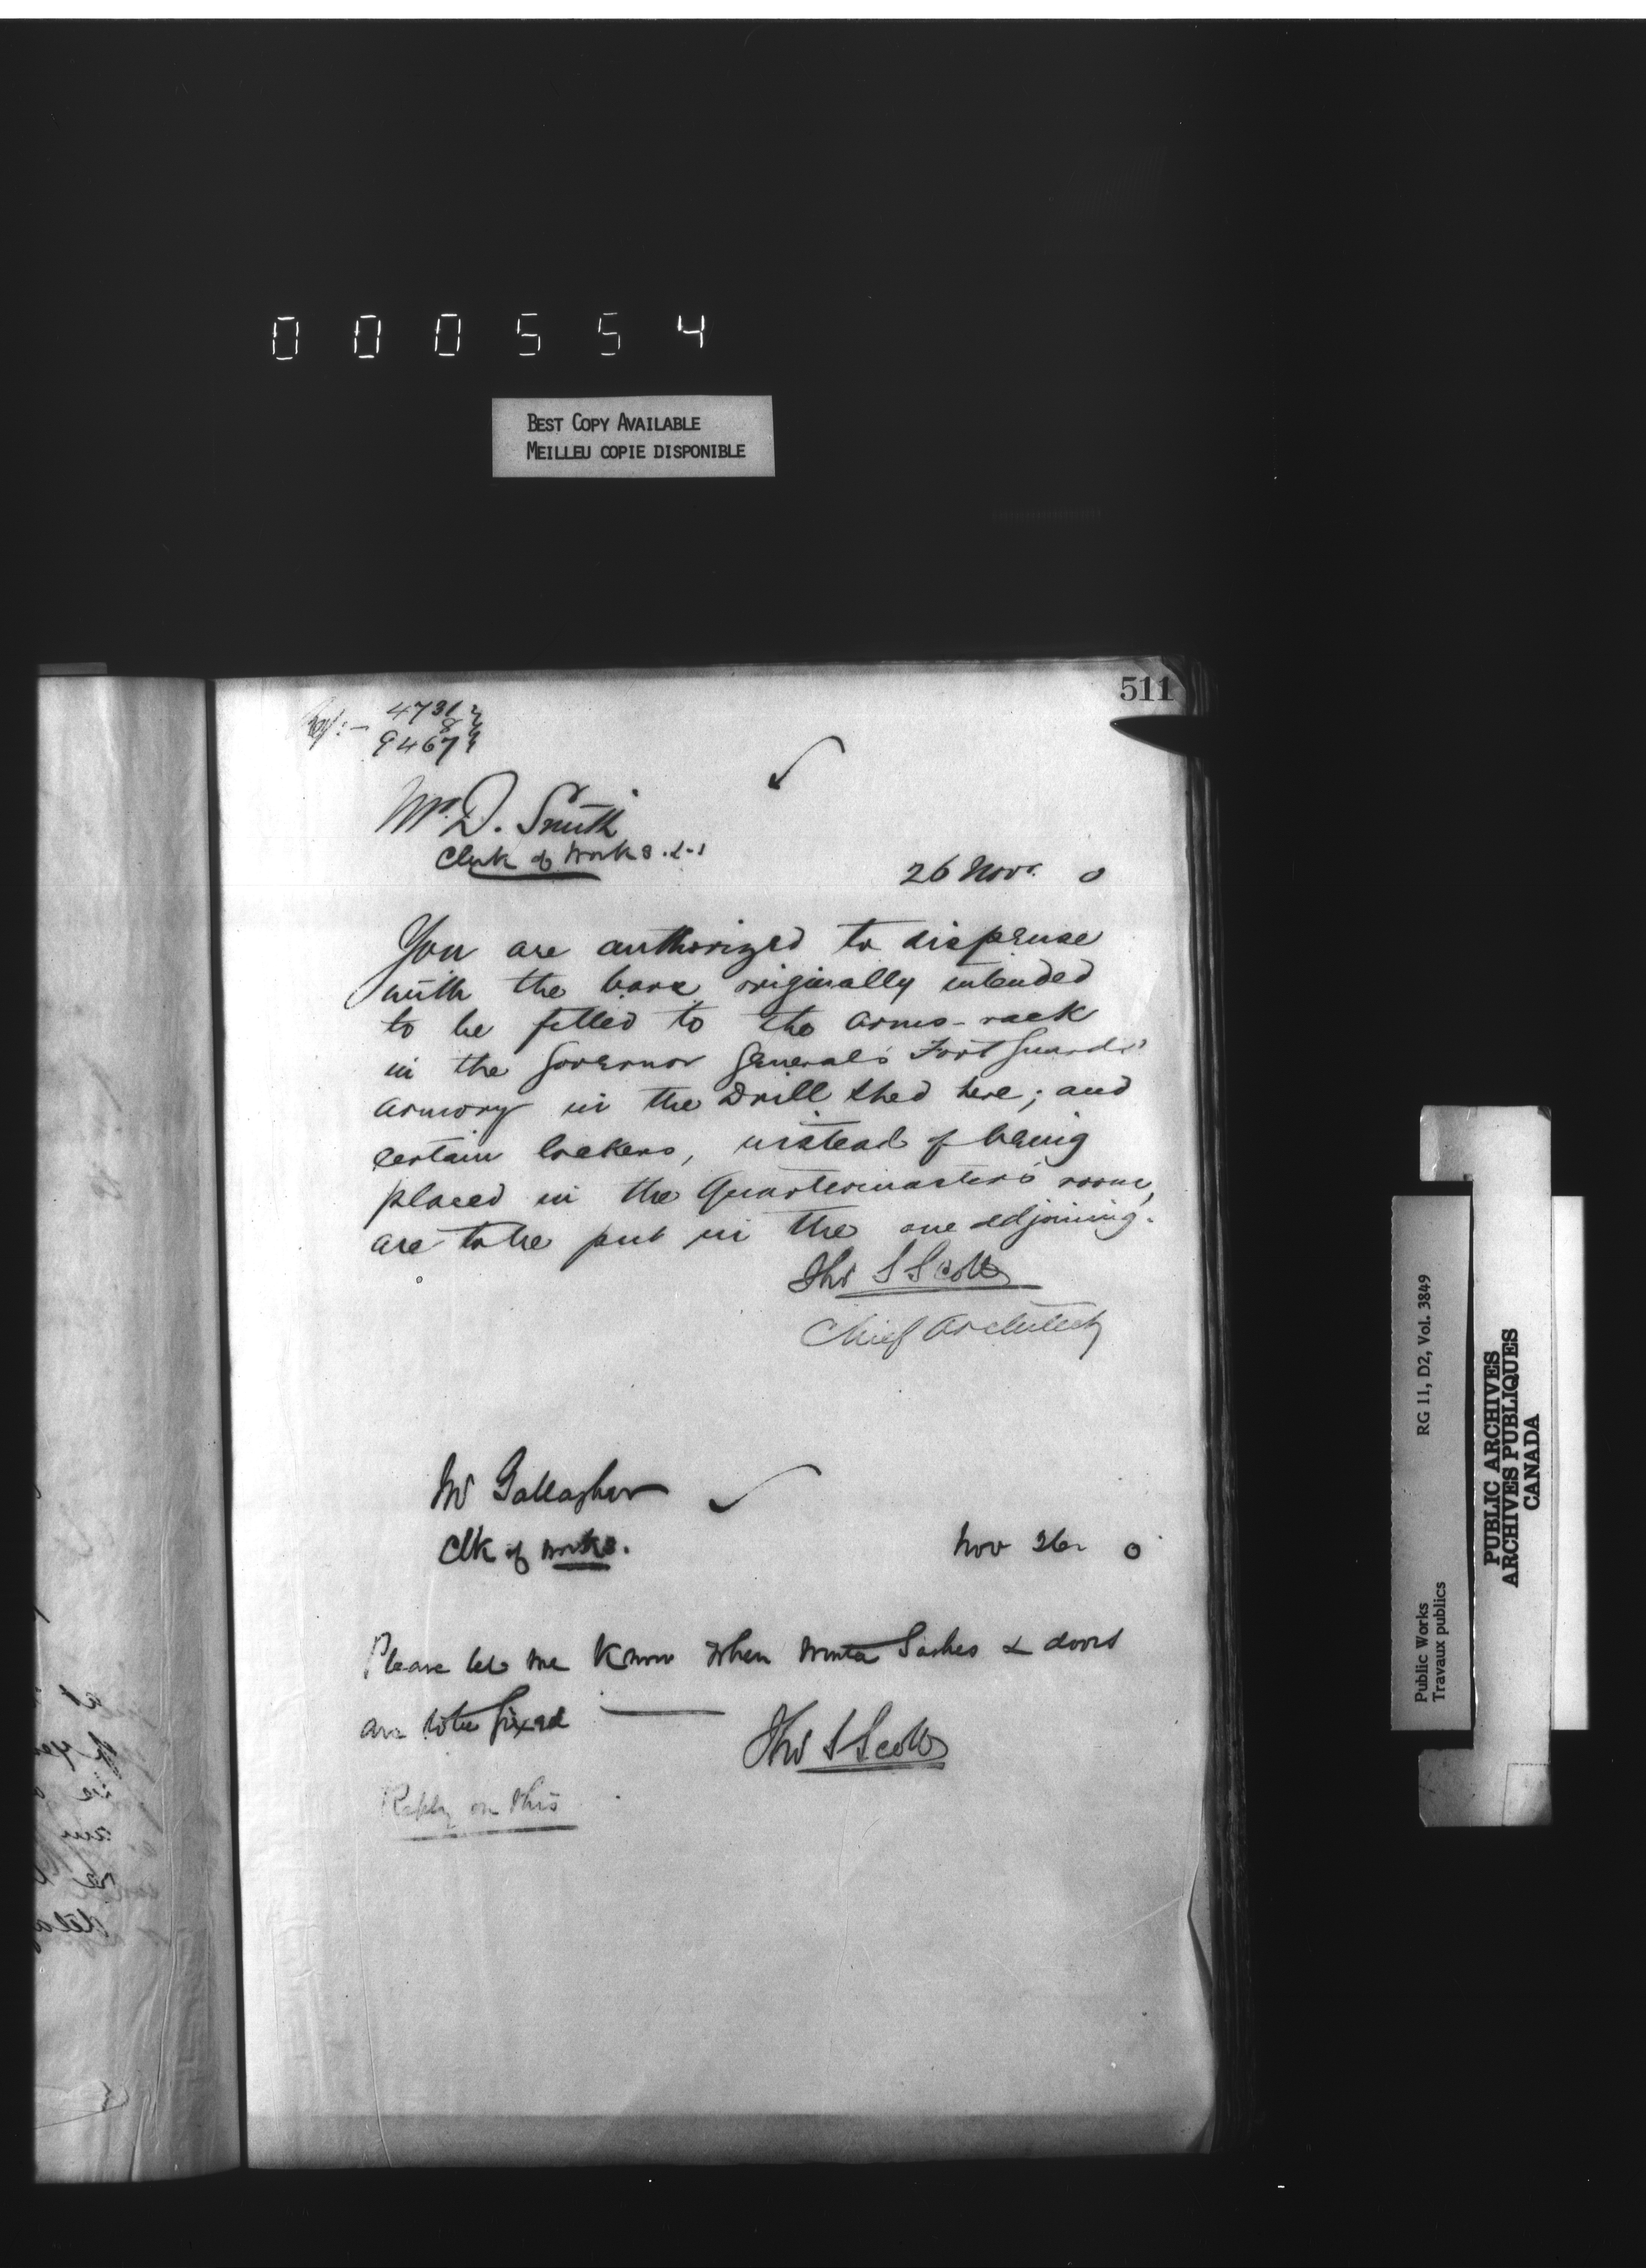 000554
BEST COPY AVAILABLE
MEILLEU COPIE DISPONIBLE
511
4731
8
94674
Mr. D. Smith
Clerk of Works
26 Novr. 0
You are authorized to dispense
with the bars originally intended
to be fitted to the arms-rack
in the Governor General's Foot Guards'
armory in the Drill shed here; and
certain lockers, instead of being
placed in the Quartermaster's room,
are to be put in the one adjoining.
Thos S Scott
Chief Architect
Mr Gallagher
Clk of Works.
Nov 26 0
Please let me know when Winter Sashes & doors
are to be fixed —
Thos S Scott
Reply on this
Public Works
Travaux publics
RG 11, D2, Vol. 3849
PUBLIC ARCHIVES
ARCHIVES PUBLIQUES
CANADA